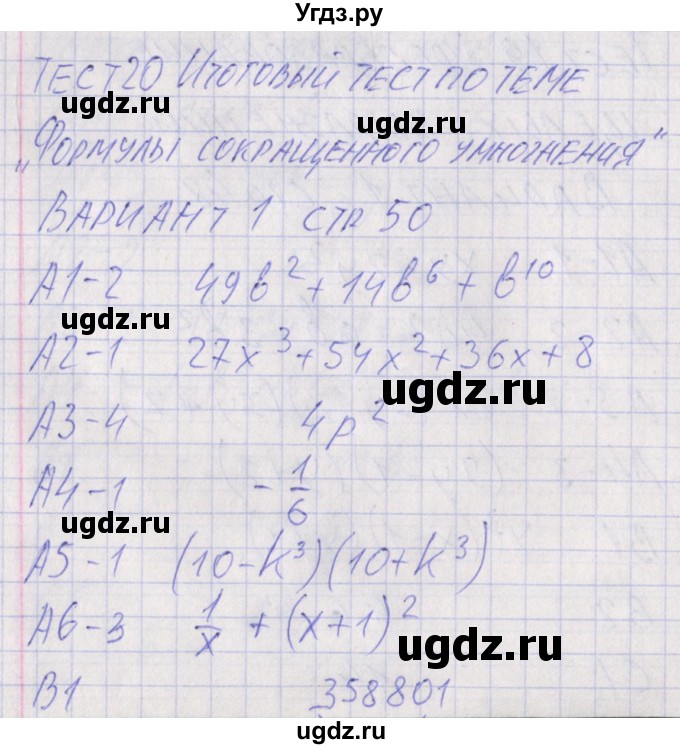 Угдз.ру
ТЕСТ 20 ИТОГОВЫЙ ТЕСТ ПО ТЕМЕ
ugdz.ru
ugdz.ru
„ФОРМУЛЫ СОКРАЩЕННОГО УМНОЖЕНИЯ"
ВАРИАНТ 1 СТР 50
А1-2 49в² + 14в⁶ + в¹⁰
ugdz.ru
А2-1 27x³+54x²+36x+8
ugdz.ru
А3-4 4p²
А4-1 -1/6
ugdz.ru
А5-1 (10-k³)(10+k³)
А6-3 1/x + (x+1)²
ugdz.ru
ugdz.ru
В1 358801
ugdz.ru